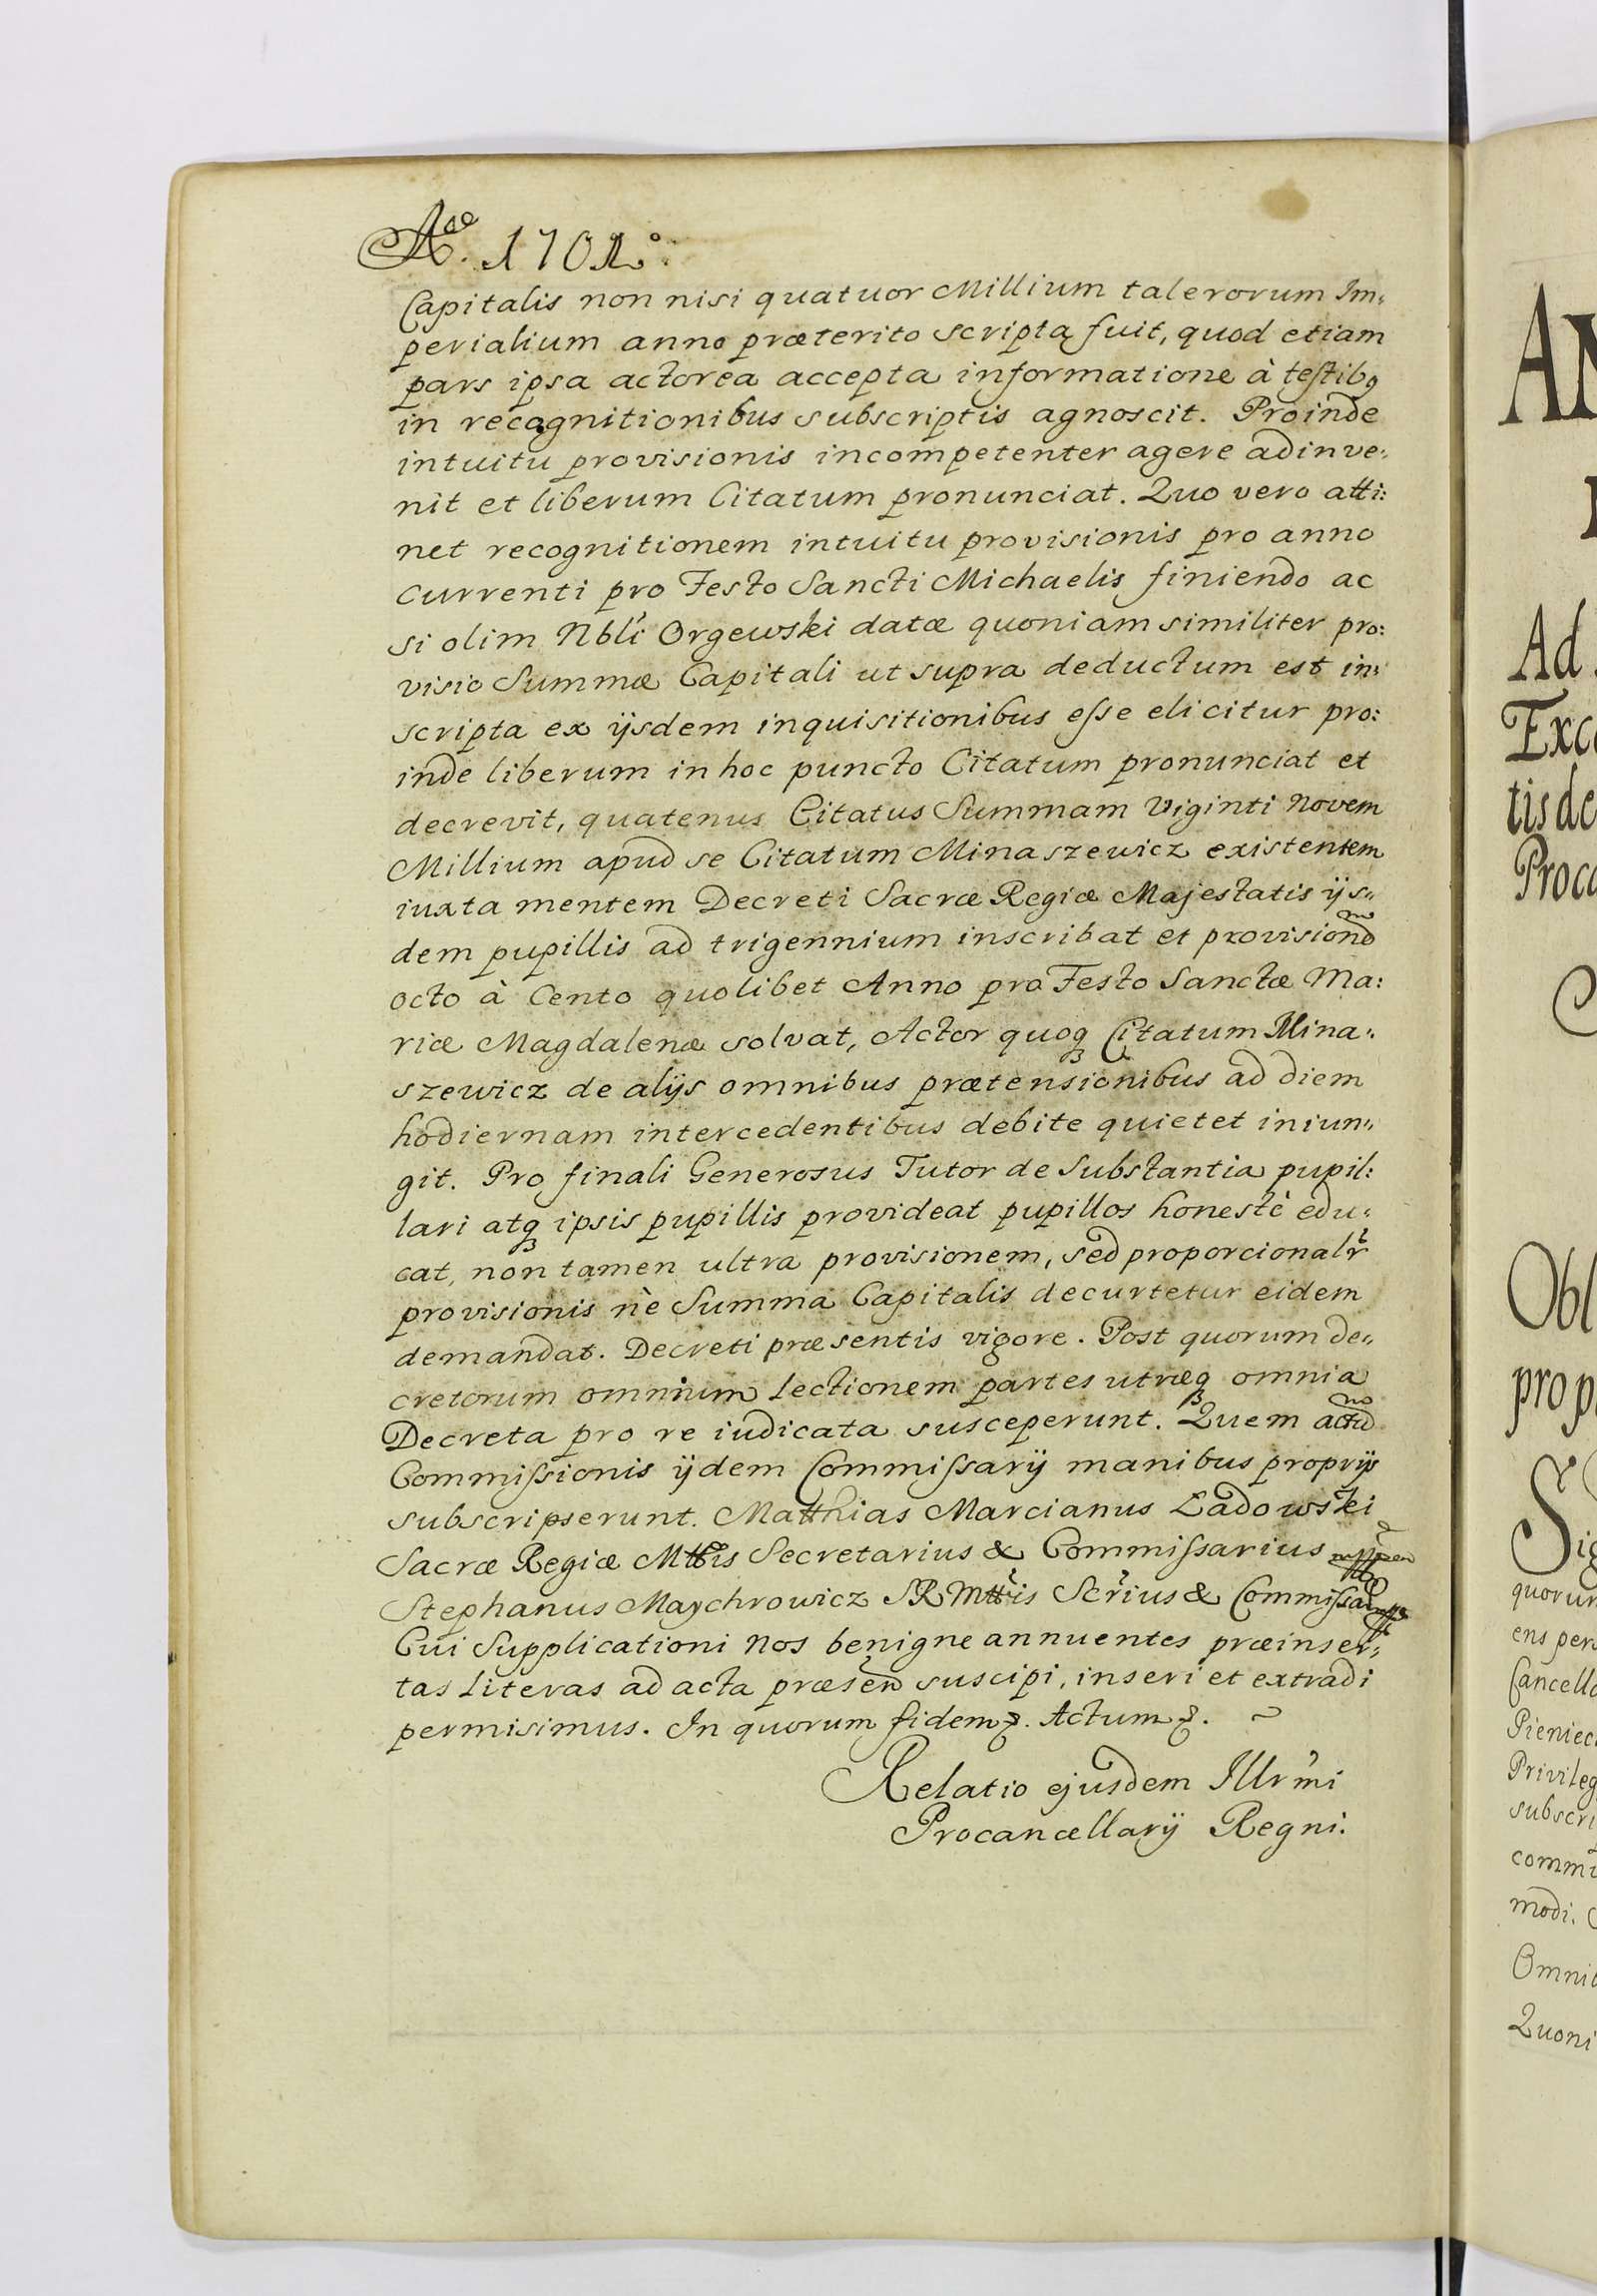 Aoo. 1701o:
Capitalis non nisi quatuor Millium talerorum Im:
perialium anno præterito scripta fuit, quod etiam
pars ipsa actorea accepta informatione à testibꝯ
in recognitionibus subscriptis agnoscit. Proinde
intuitu provisionis incompetenter agere adinve:
nit et liberum Citatum pronunciat. Quo vero atti:
net recognitionem intuitu provisionis pro anno
currenti pro Festo Sancti Michaelis finiendo ac
si olim Nbli Orgewski datæ quoniam similiter pro:
visio Summæ Capitali ut supra deductum est in:
scripta ex ijsdem inquisitionibus eſse elicitur pro:
inde liberum in hoc puncto Citatum pronunciat et
decrevit, quatenus Citatus Summam Viginti Novem
Millium apud se Citatum Minaszewicz existentem
iuxta mentem Decreti Sacræ Regiæ Majestatis ijs:
dem pupillis ad trigennium inscribat et provisionẽ
octo à Cento quolibet Anno pro Festo Sanctæ Ma:
riæ Magdalenæ solvat, Actor quoqꝫ Citatum Mina:
szewicz de alijs omnibus prætensionibus ad diem
hodiernam intercedentibus debite quietet iniun:
git. Pro finali Generosus Tutor de Substantia pupil:
lari atqꝫ ipsis pupillis provideat pupillos honestè edu:
cat, non tamen ultra provisionem, sed proporcionalr
provisionis nè Summa Capitalis decurtetur eidem
demandat. Decreti præsentis vigore. Post quorum de:
cretorum omnium lectionem partes utræqꝫ omnia
Decreta pro re iudicata susceperunt. Quem actũ
Commiſsionis ijdem Commiſsarij manibus proprijs
subscripserunt. Matthias Marcianus Ladowski
Sacræ Regiæ Mttis Secretarius & Commiſsarius
Stephanus Maychrowicz SR Mttis Scrius & Commiſsar
Cui Supplicationi Nos benigne annuentes præinser:
tas Literas ad acta præsen suscipi, inseri et extradi
permisimus. In quorum fidem &. Actum &. ~
Relatio ejusdem Illrmi
Procancellarij Regni.
AN
Ad
Exc
tis de
Proca
Obl
prop
Sig
quorun
ens per
Cancella
Pieniec
Privileg
subscri
comm
modi.
Omnib
Quoni